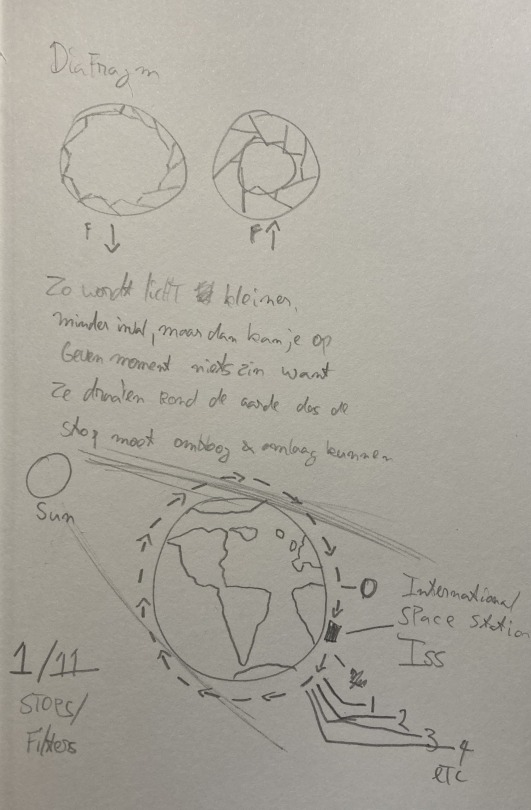 DiaFragm
F
F
Zo wordt licht kleiner,
minder inval, maar dan kan je op
Geven moment niets zin want
Ze draaien rond de aarde dus de
stop moet omhoog & omlaag kunnen
Sun
0
International
Space Station
ISS
1/11
STOPS/
Filters
1
2
3
4
etc